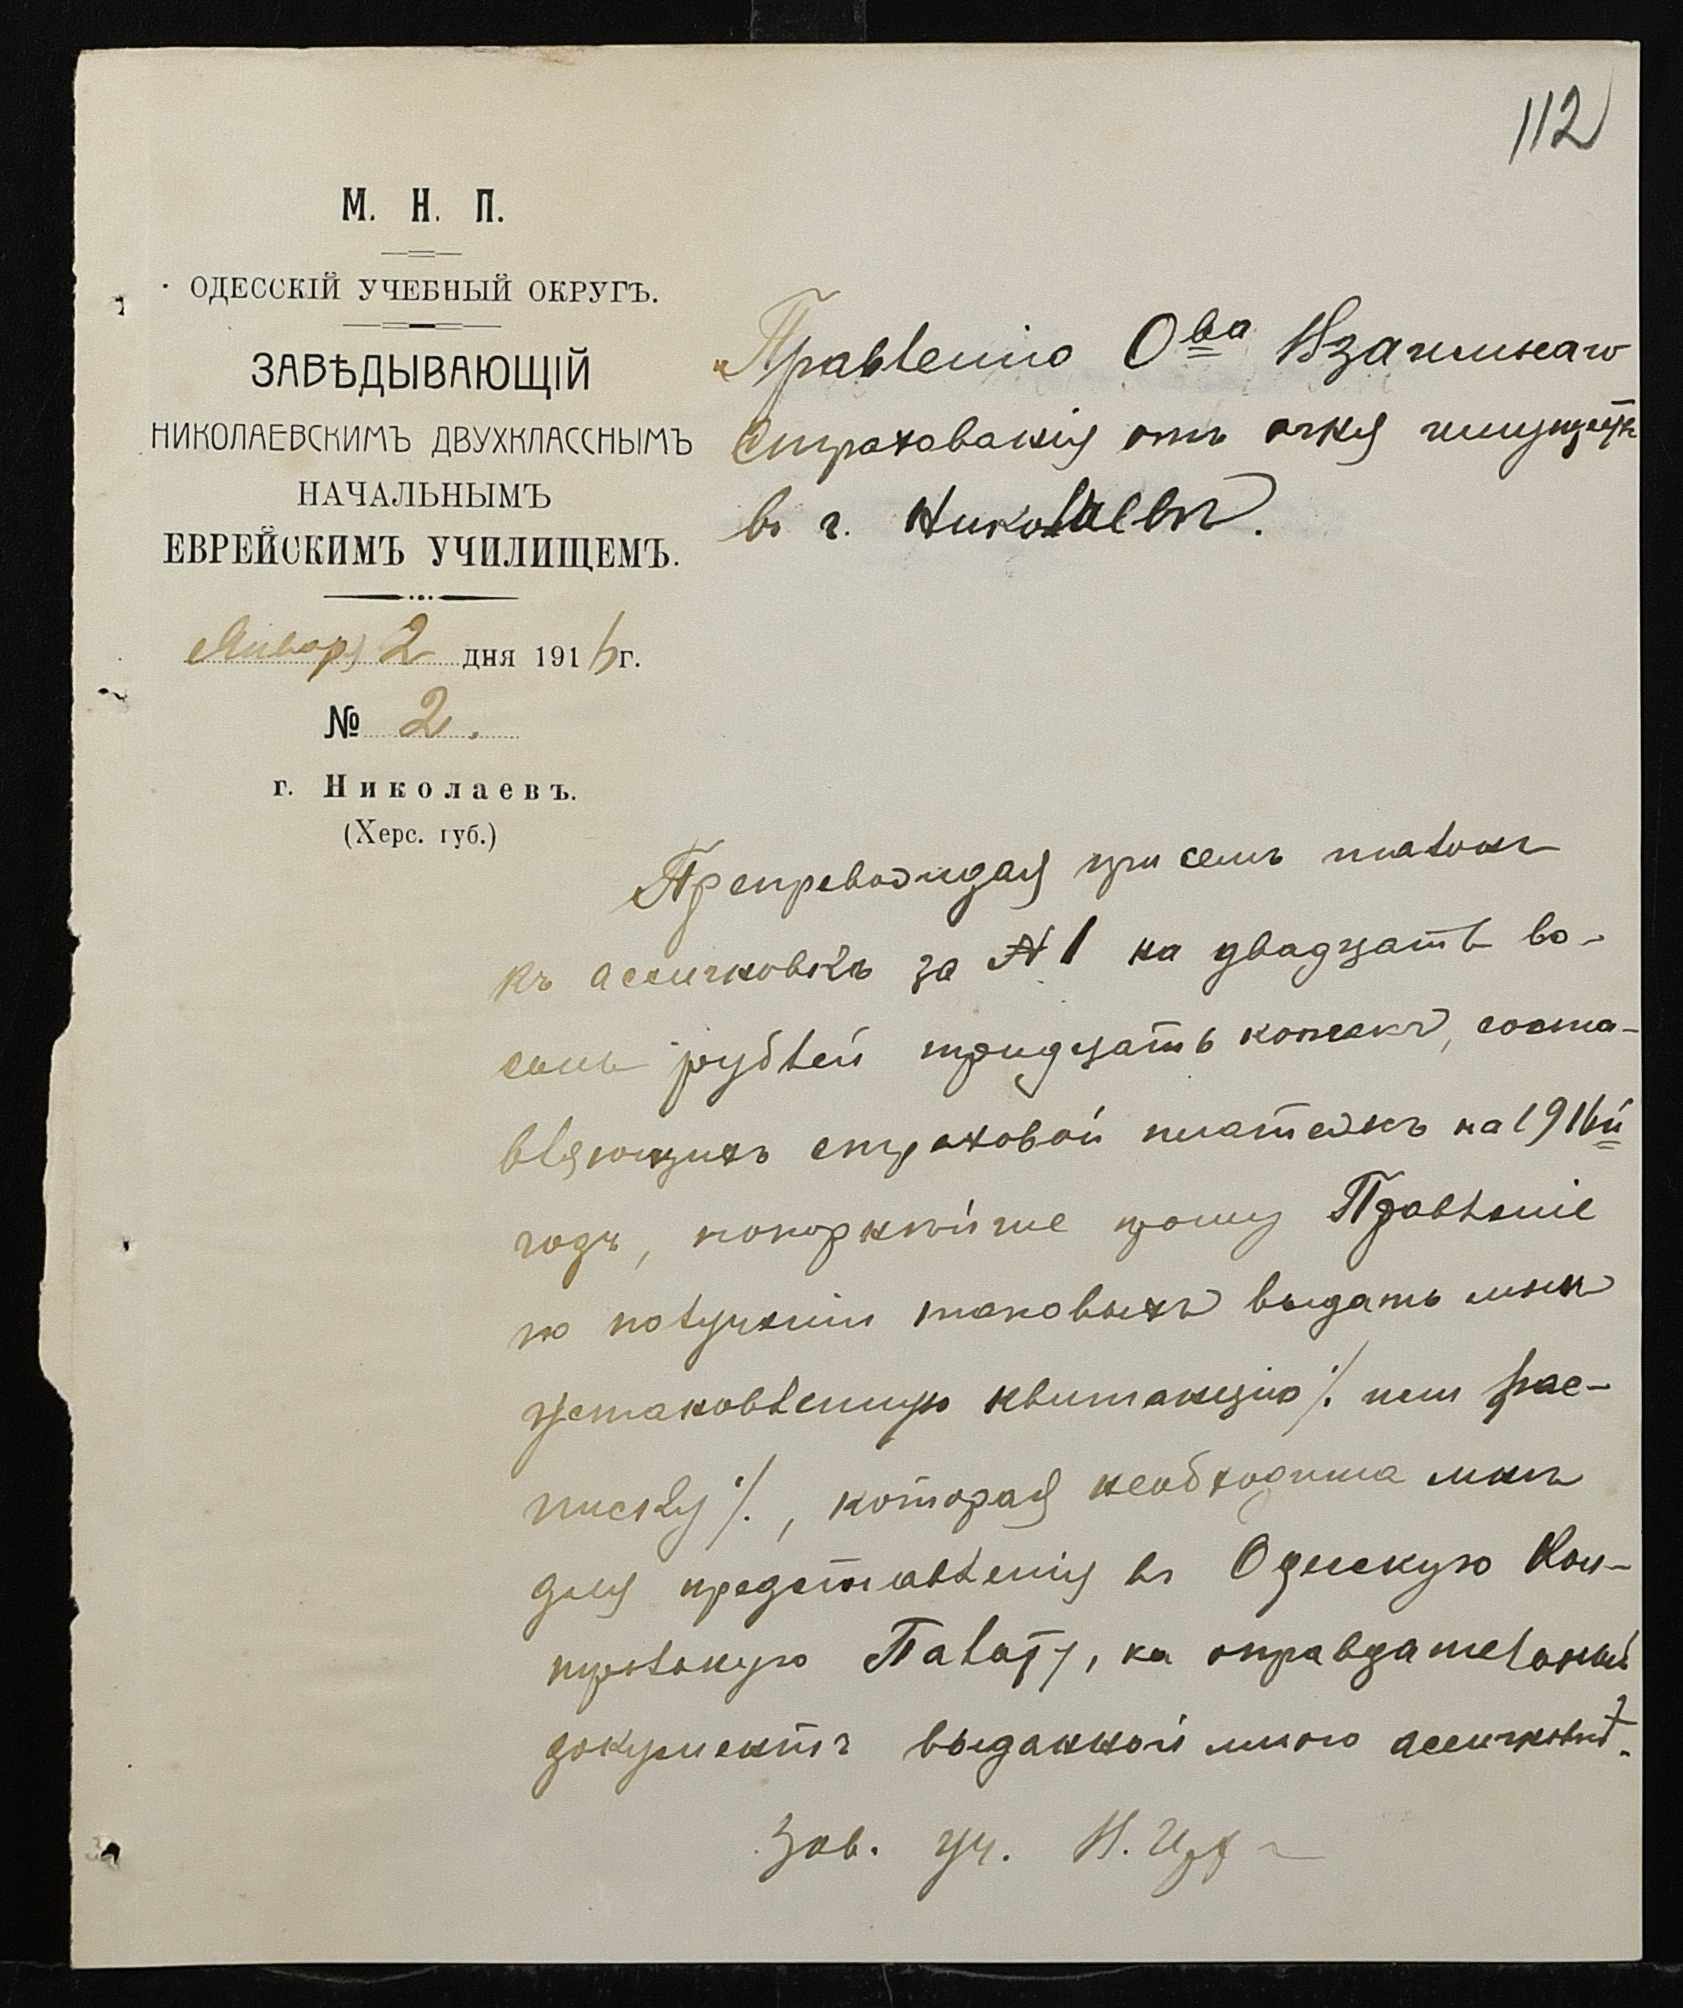 112
М. Н. П.
ОДЕССКІЙ УЧЕБНЫЙ ОКРУГЪ.
ЗАВѢДЫВАЮЩІЙ
НИКОЛАЕВСКИМЪ ДВУХКЛАССНЫМЪ
НАЧАЛЬНЫМЪ
ЕВРЕЙСКИМЪ УЧИЛИЩЕМЪ.
Января 2 дня 1916 г.
№ 2.
г. Николаевъ.
(Херс. губ.)
Правленію О-ва Взаимнаго
Страхованія отъ огня имуществъ
въ г. Николаевѣ.
Препровождая при семъ талонъ
къ ассигновкѣ за № 1 на двадцать во-
семь рублей тридцать копѣекъ, соста-
вляющихъ страховой платежъ на 1916й
годъ, покорнѣйше прошу Правленіе
по полученіи таковыхъ выдать мнѣ
установленную квитанцію /. или рас-
писку /., которая необходима мнѣ
для представленія въ Одесскую Кон-
трольную Палату, какъ оправдательный
документъ выданной мною ассигновкѣ.
Зав. уч. И.